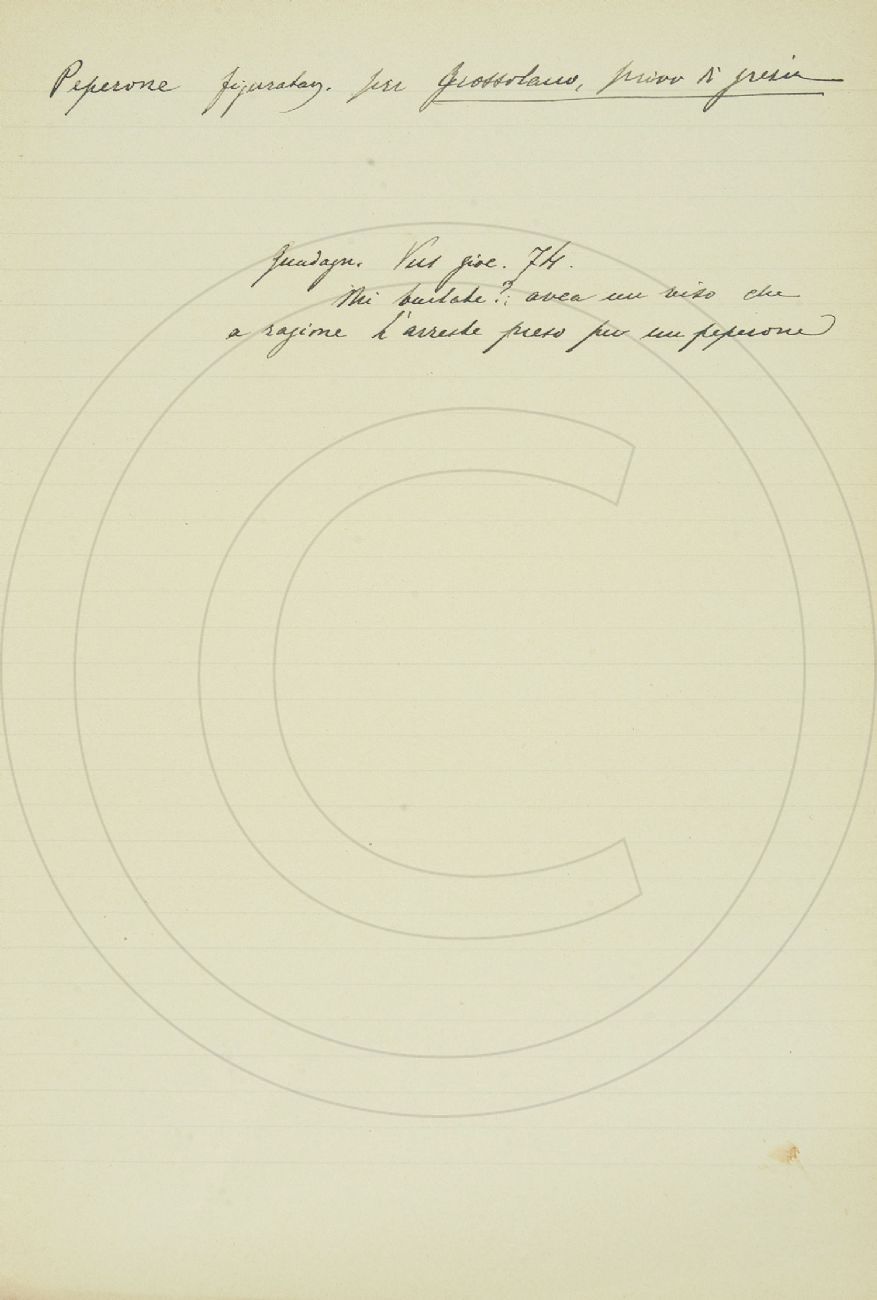 Peperone figuratam. per Grossolano, privo di grazia
Guadagn. Vis gioc. 74.
Mi burlate?: avea un viso che
a ragione l'arreste preso per un peperone